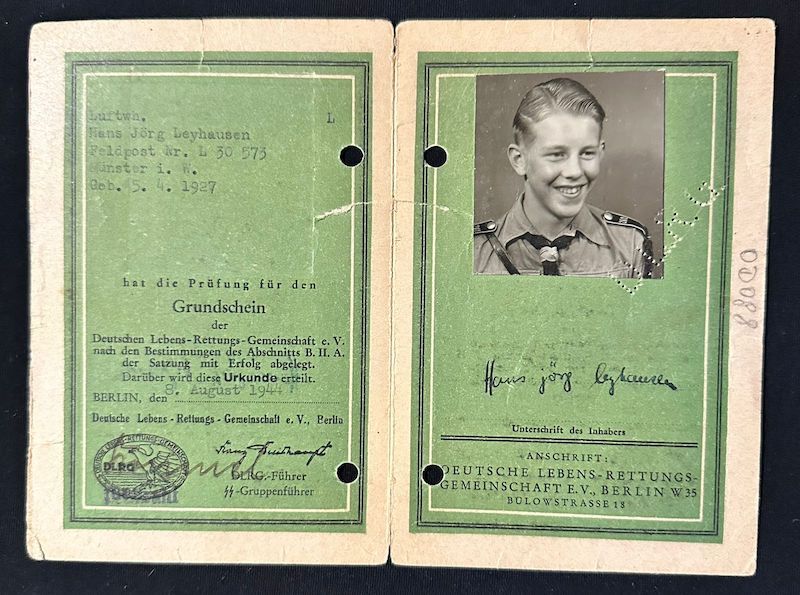 Luftwh. L
Hans Jörg Leyhausen
Feldpost Nr. L 30 573
Münster i. W.
Geb. 5. 4. 1927
hat die Prüfung für den
Grundschein
der
Deutschen Lebens-Rettungs-Gemeinschaft e. V.
nach den Bestimmungen des Abschnitts B. II. A.
der Satzung mit Erfolg abgelegt.
Darüber wird diese Urkunde erteilt.
BERLIN, den 8. August 1944
Deutsche Lebens-Rettungs-Gemeinschaft e. V., Berlin
DLRG
DLRG.-Führer
ᛋᛋ-Gruppenführer
Hans jörg leyhausen
Unterschrift des Inhabers
ANSCHRIFT:
DEUTSCHE LEBENS-RETTUNGS-
GEMEINSCHAFT E.V., BERLIN W 35
BÜLOWSTRASSE 18